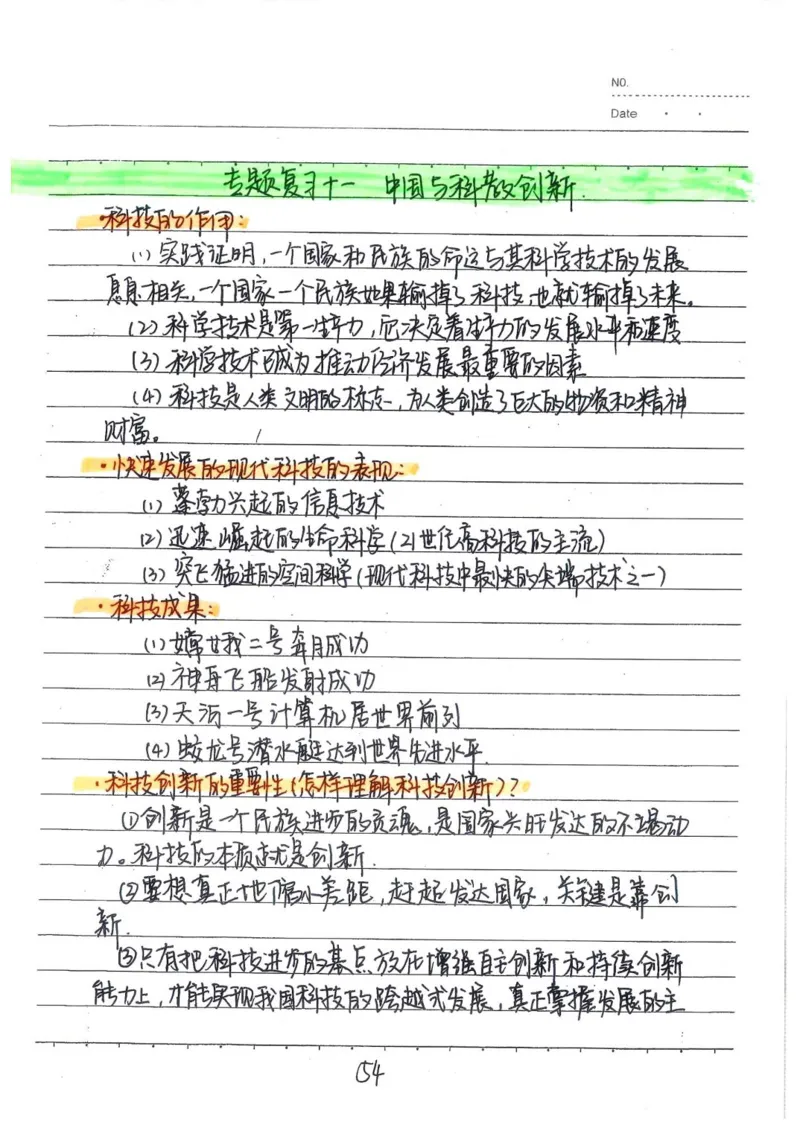 NO.
Date
专题复习十一 中国与科教创新.
·科技的作用:
(1)实践证明,一个国家和民族的命运与其科学技术的发展
息息相关,一个国家一个民族如果输掉了科技,也就输掉了未来。
(2)科学技术是第一生产力,它决定着生产力的发展水平和速度
(3)科学技术已成为推动经济发展最重要的因素
(4)科技是人类文明的标志,为人类创造了巨大的物质和精神
财富。
·快速发展的现代科技的表现:
(1)蓬勃兴起的信息技术
(2)迅速崛起的生命科学(21世纪高科技的主流)
(3)突飞猛进的空间科学(现代科技中最快的尖端技术之一)
·科技成果:
(1)嫦娥二号奔月成功
(2)神舟飞船发射成功
(3)天河一号计算机居世界前列
(4)蛟龙号潜水艇达到世界先进水平.
·科技创新的重要性(怎样理解科技创新)?
①创新是一个民族进步的灵魂,是国家兴旺发达的不竭动
力。科技的本质就是创新.
②要想真正地缩小差距,赶超发达国家,关键是靠创
新.
③只有把科技进步的基点放在增强自主创新和持续创新
能力上,才能实现我国科技的跨越式发展,真正掌握发展的主
54